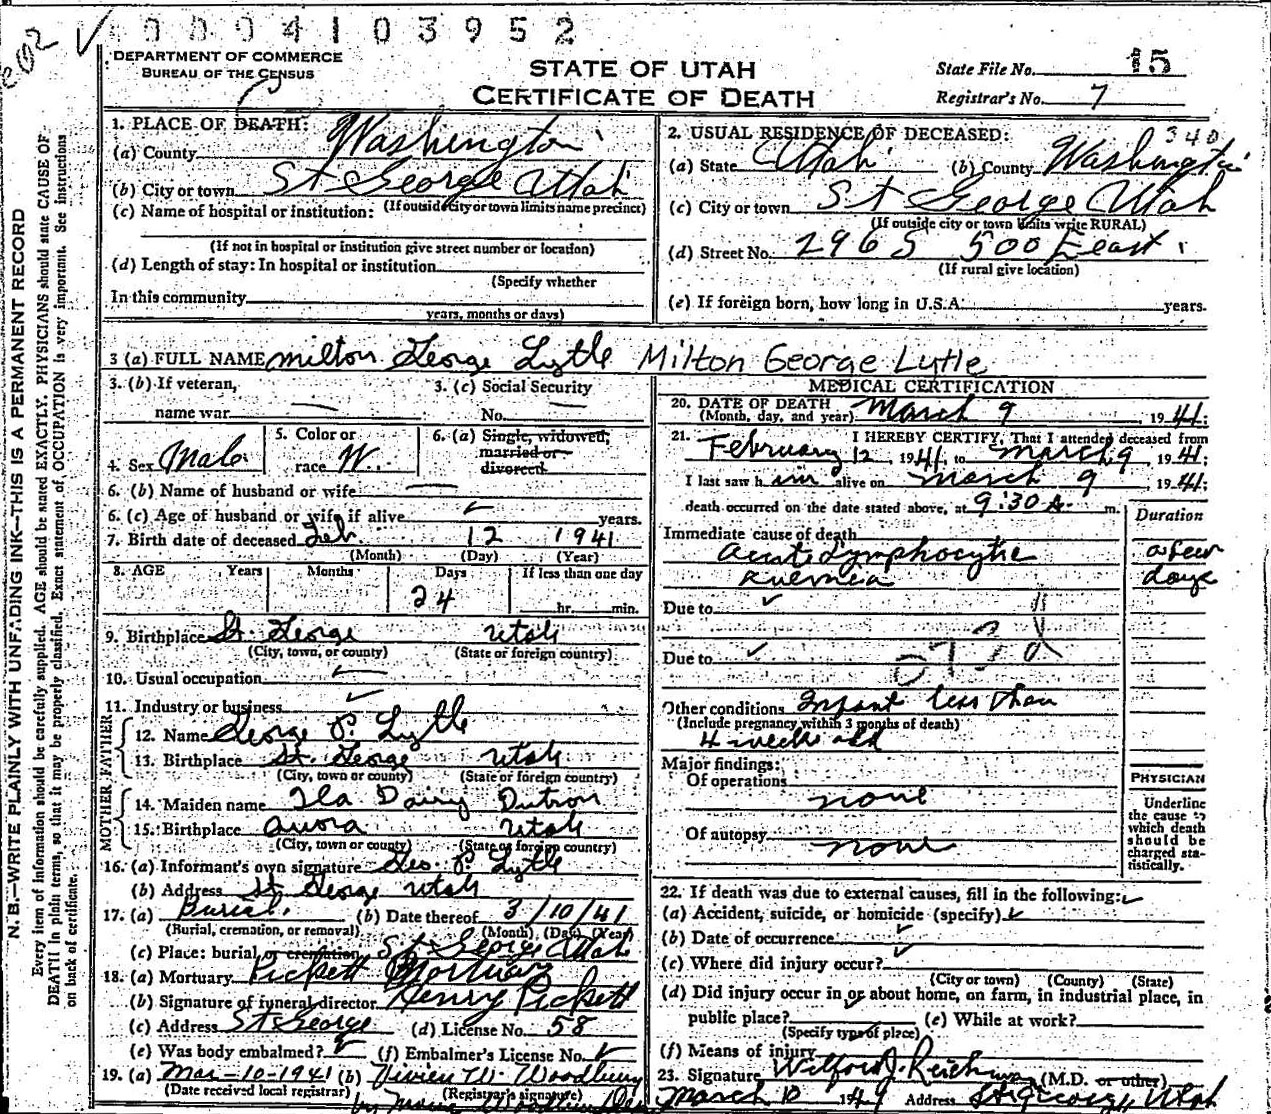 0004103952
DEPARTMENT OF COMMERCE
BUREAU OF THE CENSUS
STATE OF UTAH
CERTIFICATE OF DEATH
State File No. 15
Registrar's No. 7
1. PLACE OF DEATH:
(a) County Washington
(b) City or town St George Utah
(If outside city or town limits name precinct)
(c) Name of hospital or institution:
(If not in hospital or institution give street number or location)
(d) Length of stay: In hospital or institution
(Specify whether
In this community
years, months or days)
2. USUAL RESIDENCE OF DECEASED: 340
(a) State Utah (b) County Washington
(c) City or town St George Utah
(If outside city or town limits write RURAL)
(d) Street No. 296 S 500 East
(If rural give location)
(e) If foreign born, how long in U.S.A. years.
3 (a) FULL NAME Milton George Lytle Milton George Lytle
3. (b) If veteran,
name war
3. (c) Social Security
No.
4. Sex Male
5. Color or
race W.
6. (a) Single, widowed,
married or
divorced
6. (b) Name of husband or wife
6. (c) Age of husband or wife if alive years.
7. Birth date of deceased Feb. 12 1941
(Month) (Day) (Year)
8. AGE Years Months Days If less than one day
24 hr. min.
9. Birthplace St. George Utah
(City, town, or county) (State or foreign country)
10. Usual occupation
11. Industry or business
FATHER
12. Name George P. Lytle
13. Birthplace St. George Utah
(City, town or county) (State or foreign country)
MOTHER
14. Maiden name Ila
15. Birthplace Utah
(City, town or county) (State or foreign country)
16. (a) Informant's own signature Geo P. Lytle
(b) Address St George Utah
17. (a) Burial. (b) Date thereof 3/10/41
(Burial, cremation, or removal) (Month) (Day) (Year)
(c) Place: burial or cremation St George Utah
18. (a) Mortuary Pickett Mortuary
(b) Signature of funeral director Henry Pickett
(c) Address St George (d) License No. 58
(e) Was body embalmed? (f) Embalmer's License No.
19. (a) Mar-10-1941 (b) Vivien W. Woodbury
(Date received local registrar) (Registrar's signature)
MEDICAL CERTIFICATION
20. DATE OF DEATH
(Month, day, and year) March 9, 1941:
21. I HEREBY CERTIFY, That I attended deceased from
February 12 1941, to March 9, 1941;
I last saw him alive on March 9, 1941;
death occurred on the date stated above, at 9:30 A. m.
Duration
Immediate cause of death
Acute Lymphocytic a few
days
Due to
Due to
Other conditions Infant less than
(Include pregnancy within 3 months of death)
4 weeks old
Major findings:
Of operations
none
Of autopsy
none
PHYSICIAN
Underline
the cause to
which death
should be
charged sta-
tistically.
22. If death was due to external causes, fill in the following:
(a) Accident, suicide, or homicide (specify)
(b) Date of occurrence
(c) Where did injury occur?
(City or town) (County) (State)
(d) Did injury occur in or about home, on farm, in industrial place, in
public place? (e) While at work?
(Specify type of place)
(f) Means of injury
23. Signature Wilford J. Reichmann (M.D. or other)
March 10 Address St George Utah
N. B.—WRITE PLAINLY WITH UNFADING INK—THIS IS A PERMANENT RECORD
Every item of information should be carefully supplied. AGE should be stated EXACTLY. PHYSICIANS should state CAUSE OF
DEATH in plain terms, so that it may be properly classified. Exact statement of OCCUPATION is very important. See instructions
on back of certificate.